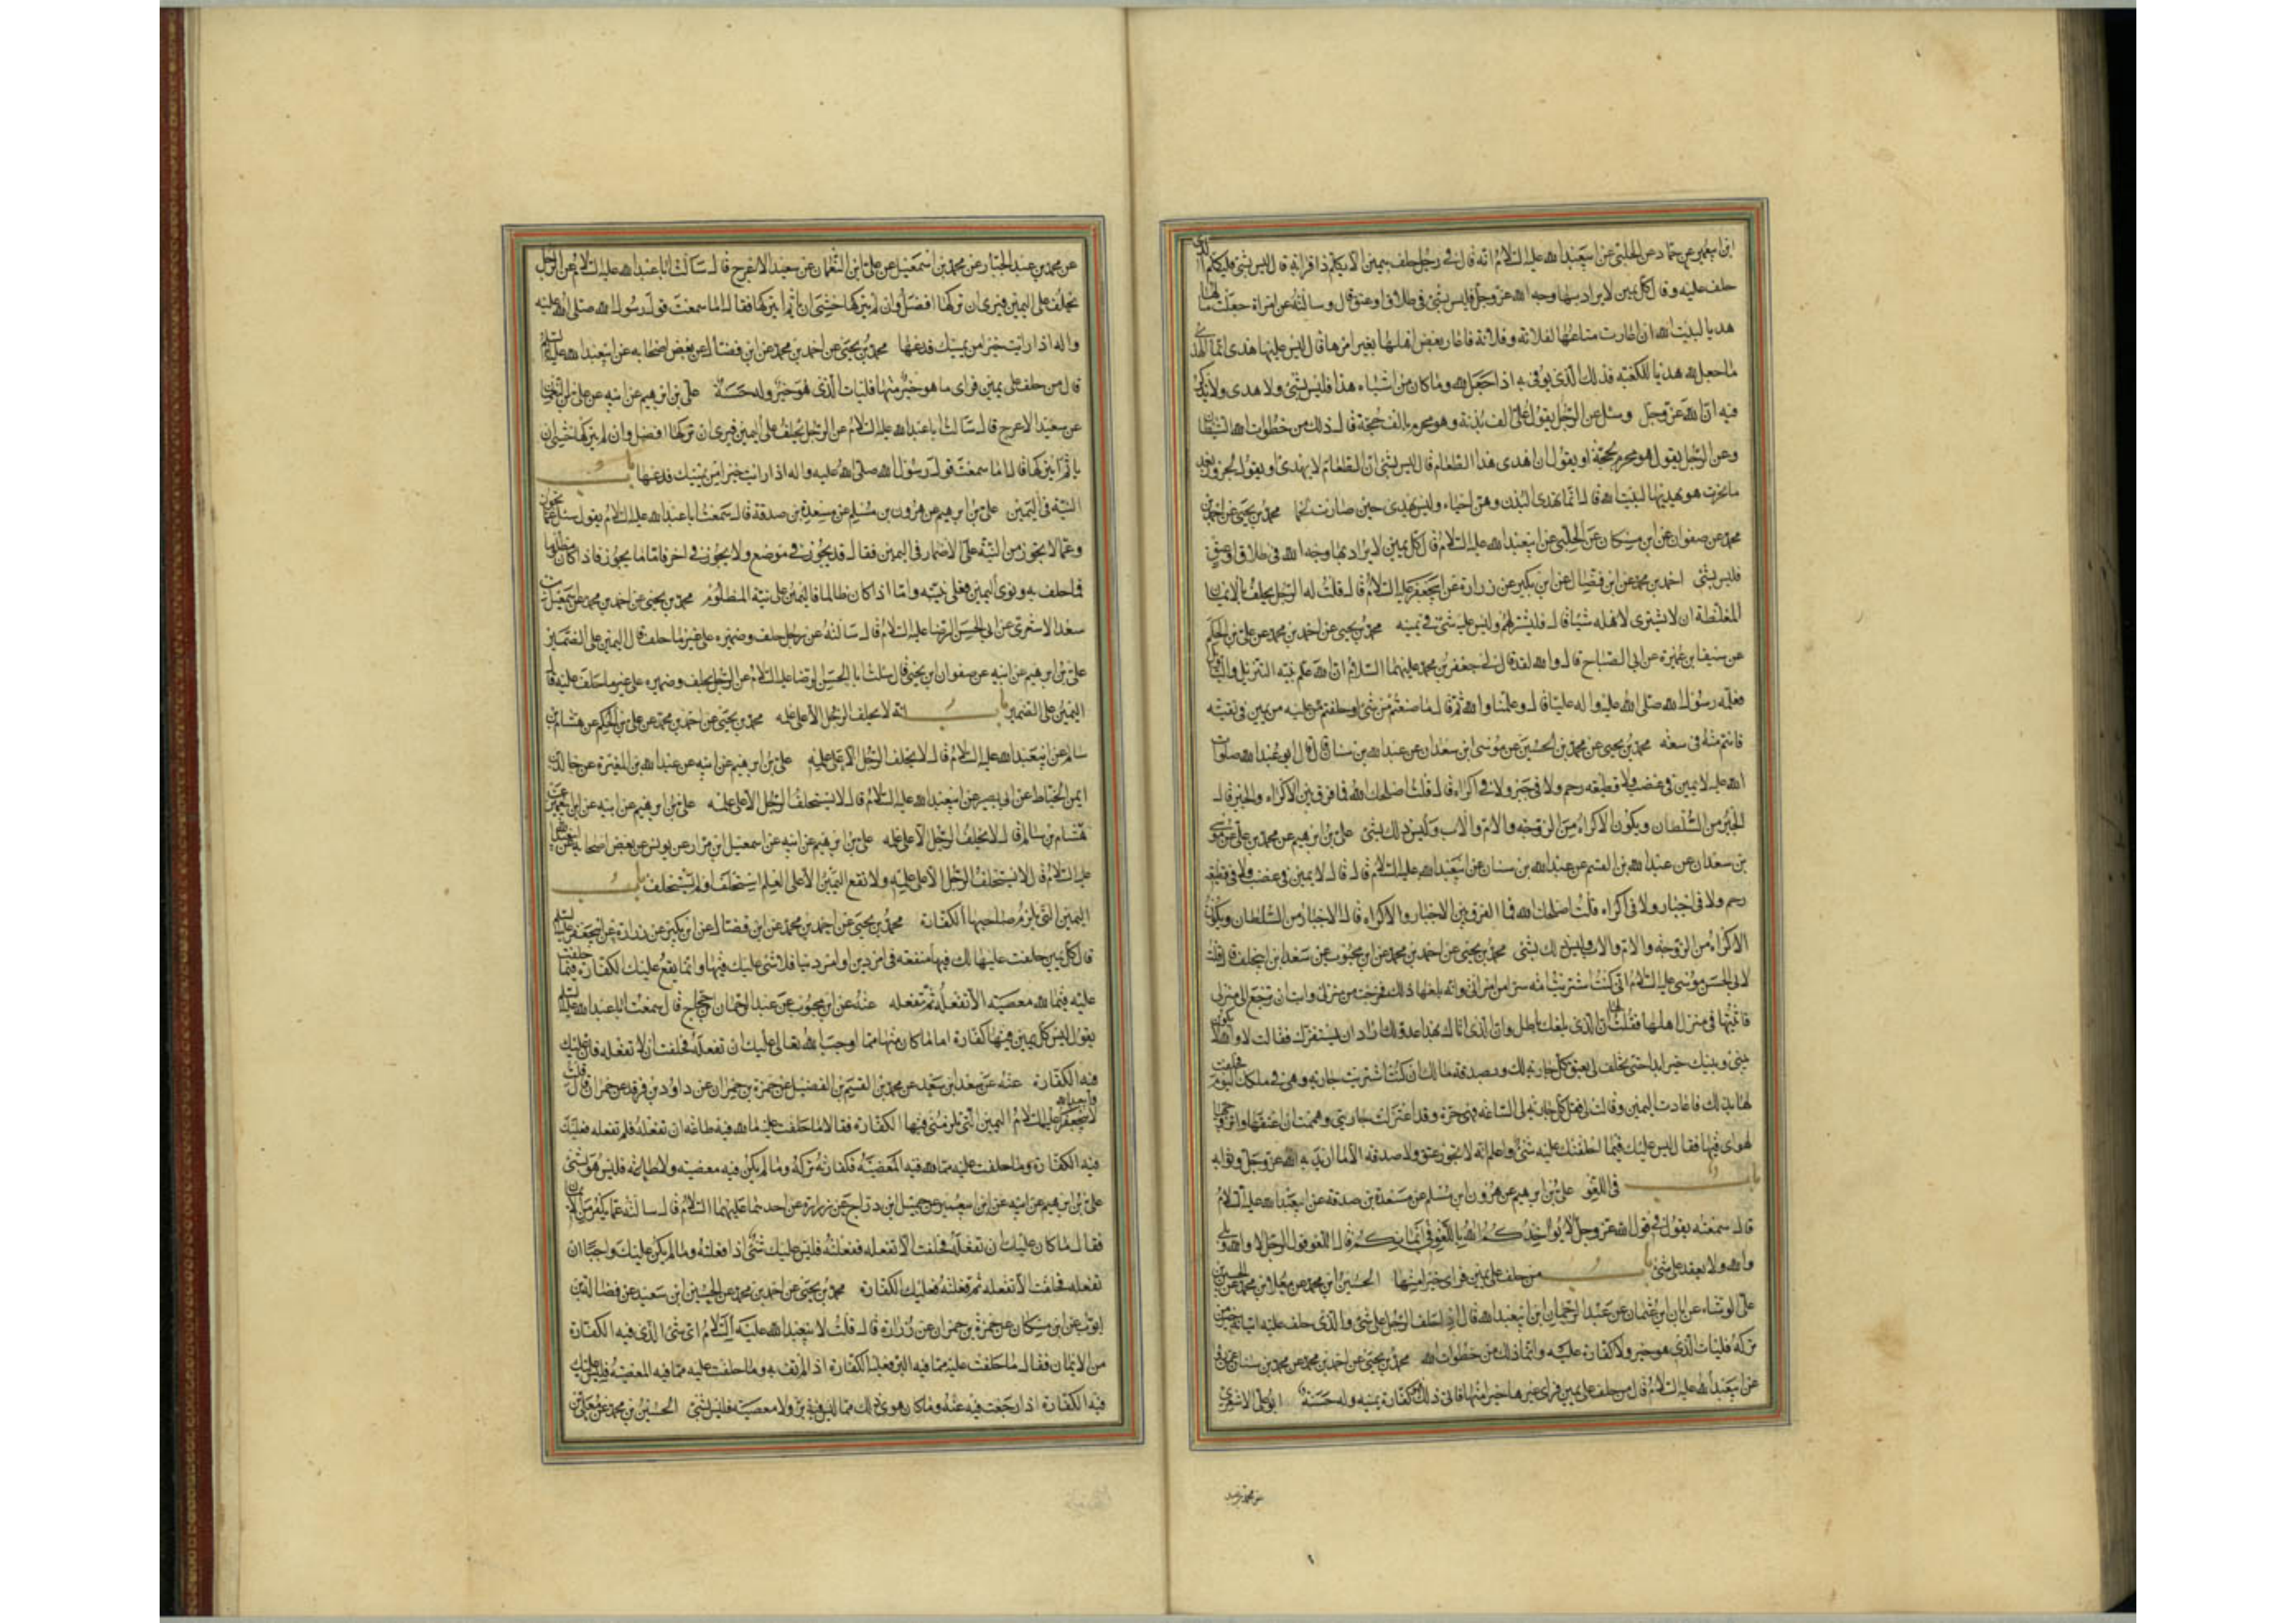 ابن ابي عمير عن حماد عن الحلبي عن ابي عبد الله عليه السلام انه قال في رجل حلف بيمين الا يكلم ذا قرابة له قال ليس بشئ فليكلم الذي
حلف عليه وقال كل يمين لا يراد بها وجه الله عز وجل فليس بشئ في طلاق او عتق قال وسالته عن امراة جعلت مالها
هديا لبيت الله ان اعارت متاعها لفلانة وفلانة فاعار بعض اهلها بغير امرها قال ليس عليها هدى انما الهدى
ما جعل لله هديا للكعبة فذلك الذي يوفى به اذا جعل لله وما كان من اشباه هذا فليس بشئ ولا هدى ولا يذكر
فيه الله عز وجل وسئل عن الرجل يقول على الف بدنة وهو محرم بالف حجة قال ذلك من خطوات الشيطان
وعن الرجل يقول هو محرم بحجة او يقول ان اهدى هذا الطعام قال ليس بشئ ان الطعام لا يهدى او يقول لجزور بعد
ما نحرت هو يهديها لبيت الله قال انما تهدى البدن وهن احياء وليس تهدى حين صارت لحما محمد بن يحيى عن احمد بن
محمد عن صفوان عن ابن مسكان عن الحلبي عن ابي عبد الله عليه السلام قال كل يمين لا يراد بها وجه الله في طلاق او عتق
فليس بشئ احمد بن محمد عن ابن فضال عن ابن بكير عن زرارة عن ابي جعفر عليه السلام قال قلت له الرجل يحلف بالايمان
المغلظة ان لا يشترى لاهله شيئا قال فليشتر لهم وليس عليه شئ في يمينه محمد بن يحيى عن احمد بن محمد عن علي بن الحكم
عن سيف بن عميرة عن ابي الصباح قال والله لقد قال لي جعفر بن محمد عليهما السلام ان الله علم نبيه التنزيل والتاويل
فعلمه رسول الله صلى الله عليه واله عليا قال وعلمنا والله ثم قال ما صنعتم من شئ او حلفتم عليه من يمين في تقية
فانتم منه في سعة محمد بن يحيى عن محمد بن الحسين عن موسى ابن سعدان عن عبد الله بن سنان قال قال ابو عبد الله صلوات
الله عليه لا يمين في غضب ولا قطيعة رحم ولا في جبر ولا في اكراه قال قلت اصلحك الله فما فرق بين الاكراه والجبر قال
الجبر من السلطان ويكون الاكراه من الزوجة والام والاب وليس ذلك بشئ علي بن ابرهيم عن محمد بن علي عن موسى
بن سعدان عن عبد الله بن القسم عن عبد الله بن سنان عن ابي عبد الله عليه السلام قال قال لا يمين في غضب ولا في قطيعة
رحم ولا في اجبار ولا في اكراه قلت اصلحك الله فما الفرق بين الاجبار والاكراه قال الاجبار من السلطان ويكون
الاكراه من الزوجة والام والاب وليس ذلك بشئ محمد بن يحيى عن احمد بن محمد عن ابن محبوب عن سعد ابن ابي خلف قال قلت
لابي الحسن موسى عليه السلام اني كنت اشتريت امة سرا من امراتي وانه بلغها ذلك فخرجت من منزلي وابت ان ترجع الى منزلي
فاتيتها في منزل اهلها فقلت لها ان الذي بلغك باطل وان الذي اتاك بهذا عدو لك اراد ان يستفزك فقالت لا والله لا يكون
بيني وبينك خير ابدا حتى تحلف لي بعتق كل جارية لك وبصدقة مالك ان كنت اشتريت جارية وهي في ملكك اليوم فحلفت
لها بذلك فاعادت اليمين وقالت لي فقل كل جارية لي الساعة فهي حرة وقد اعتزلت جاريتي وهممت ان اعتقها واتزوجها
لهواي فيها فقال ليس عليك فيما احلفتك عليه شئ واعلم انه لا يجوز عتق ولا صدقة الا ما اريد به وجه الله عز وجل وثوابه
باب في اللغو علي بن ابرهيم عن هرون ابن مسلم عن مسعدة بن صدقة عن ابي عبد الله عليه السلام
قال سمعته يقول في قول الله عز وجل لا يؤاخذكم الله باللغو في ايمانكم قال اللغو قول الرجل لا والله وبلى
والله ولا يعقد على شئ باب من حلف على يمين فراى خيرا منها الحسين ابن محمد عن معلى بن محمد عن الحسن بن
علي الوشاء عن ابان ابن عثمان عن عبد الرحمان ابن ابي عبد الله قال اذا حلف الرجل على شئ والذي حلف عليه اتيانه خير من
تركه فليات الذي هو خير ولا كفارة عليه وانما ذلك من خطوات محمد بن يحيى عن احمد بن محمد عن محمد بن سنان عن
عن ابي عبد الله عليه السلام قال من حلف على يمين فراى غيرها خيرا منها فاتى ذلك فهو كفارة يمينه وله حسنة ابو علي الاشعري
عن محمد بن عبد
عن محمد بن عبد الجبار عن محمد بن اسمعيل عن علي ابن النعمان عن سعيد الاعرج قال سالت ابا عبد الله عليه السلام عن الرجل
يحلف على اليمين فيرى ان تركها افضل وان لم يتركها خشى ان ياثم ايتركها فقال اما سمعت قول رسول الله صلى الله عليه
واله اذا رايت خيرا من يمينك فدعها محمد بن يحيى عن احمد بن محمد عن ابن فضال عن بعض اصحابه عن ابي عبد الله عليه السلام
قال من حلف على يمين فراى ما هو خير منها فليات الذي هو خير وله حسنة علي بن ابرهيم عن ابيه عن علي بن النعمان
عن سعيد الاعرج قال سالت ابا عبد الله عليه السلام عن الرجل يحلف على اليمين فيرى ان تركها افضل وان لم يتركها خشى ان
ياثم ايتركها قال اما سمعت قول رسول الله صلى الله عليه واله اذا رايت خيرا من يمينك فدعها باب
النية في اليمين علي بن ابرهيم عن هرون بن مسلم عن مسعدة بن صدقة قال سمعت ابا عبد الله عليه السلام يقول سئل عما يجوز
وعما لا يجوز من النية على الاضمار في اليمين فقال قد يجوز في موضع ولا يجوز في اخر فاما ما يجوز فاذا كان مظلوما
فما حلف به ونوى اليمين فعلى نيته واما اذا كان ظالما فاليمين على نية المظلوم محمد بن يحيى عن احمد بن محمد عن اسمعيل بن
سعد الاشعري عن ابي الحسن الرضا عليه السلام قال سالته عن رجل حلف وضميره على غير ما حلف قال اليمين على الضمير
علي بن ابرهيم عن ابيه عن صفوان ابن يحيى قال سالت ابا الحسن الرضا عليه السلام عن الرجل يحلف وضميره على غير ما حلف عليه قال
اليمين على الضمير باب انه لا يحلف الرجل الا على علمه محمد بن يحيى عن احمد بن محمد عن علي بن الحكم عن هشام بن
سالم عن ابي عبد الله عليه السلام قال لا يحلف الرجل الا على علمه علي بن ابرهيم عن ابيه عن عبد الله بن المغيرة عن خالد بن
ايمن الحناط عن ابي بصير عن ابي عبد الله عليه السلام قال لا يستحلف الرجل الا على علمه علي بن ابرهيم عن ابيه عن ابن ابي عمير عن
هشام بن سالم قال لا يحلف الرجل الا على علمه علي بن ابرهيم عن ابيه عن اسمعيل ابن مرار عن يونس عن بعض اصحابه عن ابي عبد الله
عليه السلام قال لا يستحلف الرجل الا على علمه ولا تقع اليمين الا على العلم استحلف او لم يستحلف باب
اليمين التي يلزم صاحبها الكفارة محمد بن يحيى عن احمد بن محمد عن ابن فضال عن ابن بكير عن زرارة عن ابي جعفر عليه السلام
قال كل يمين حلفت عليها لك فيها منفعة في امر دين او امر دنيا فلا شئ عليك فيها وانما يقع عليك الكفارة فيما حلفت
عليه فيما لله معصية الا تفعله ثم تفعله عنه عن ابن محبوب عن عبد الرحمان بن حجاج قال سمعت ابا عبد الله عليه السلام
يقول ليس كل يمين فيها كفارة اما ما كان منها مما اوجب الله تعالى عليك ان تفعله فحلفت ان لا تفعله فليس عليك
فيه الكفارة عنه عن سعد ابن سعيد عن محمد بن القسم بن الفضيل عن حمزة بن حمران عن داود بن فرقد عن حمران قال قلت
لابي جعفر وابي عبد الله عليهما السلام اليمين التي تلزمني فيها الكفارة فقالا ما حلفت عليه مما لله فيه طاعة ان تفعله فلم تفعله فعليك
فيه الكفارة وما حلفت عليه مما لله فيه المعصية فكفارته تركه وما لم يكن فيه معصية ولا طاعة فليس هو بشئ
علي بن ابرهيم عن ابيه عن ابن ابي عمير عن جميل ابن دراج عن زرارة عن احدهما عليهما السلام قال سالته عما يكفر من الايمان
فقال ما كان عليك ان تفعله فحلفت الا تفعله ففعلته فليس عليك شئ اذا فعلته وما لم يكن عليك واجبا ان
تفعله فحلفت الا تفعله ثم فعلته فعليك الكفارة محمد بن يحيى عن احمد بن محمد عن الحسين ابن سعيد عن فضالة بن
ايوب عن ابن مسكان عن حمزة بن حمران عن زرارة قال قلت لابي عبد الله عليه السلام اي شئ الذي فيه الكفارة
من الايمان فقال ما حلفت عليه مما فيه البر فعليه الكفارة اذا لم تف به وما حلفت عليه مما فيه المعصية فليس عليك
فيه الكفارة اذا رجعت فيه عنه وما كان سوى ذلك مما ليس فيه بر ولا معصية فليس بشئ الحسين بن محمد عن معلى بن